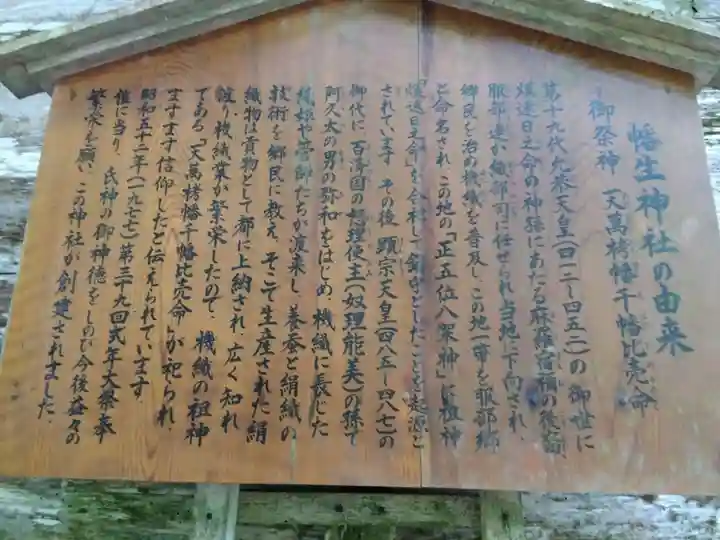 幡生神社の由来
御祭神　天萬栲幡千幡比売命
第十九代允恭天皇(四一二―四五二)の御世に
熯速日之命の神孫にあたる麻羅宿禰の後裔
服部連が織部司に任ぜられ当地に下向され、
郷民を治め機織を普及し、この地一帯を服部郷
と命名され、この地の「正五位八架神」に祖神
「熯速日之命」を合祀して鎮守としたことを起源と
されています。その後、顕宗天皇(四八五―四八七)の
御代に、百済国の奴理使主(奴理能美)の孫で
阿久太の男の弥和をはじめ、機織に長じた
技術を郷民に教え、そこで生産された絹
織物は貢物として都に上納され、広く知れ
渡り、機織業が繁栄したので、機織の祖神
である「天萬栲幡千幡比売命」が祀られ、
ますます信仰したと伝えられています。
昭和五十二年(一九七七)第三十九回式年大祭奉
催に当り、氏神の御神徳をしのび今後益々の
繁栄を願い、この神社が創建されました。